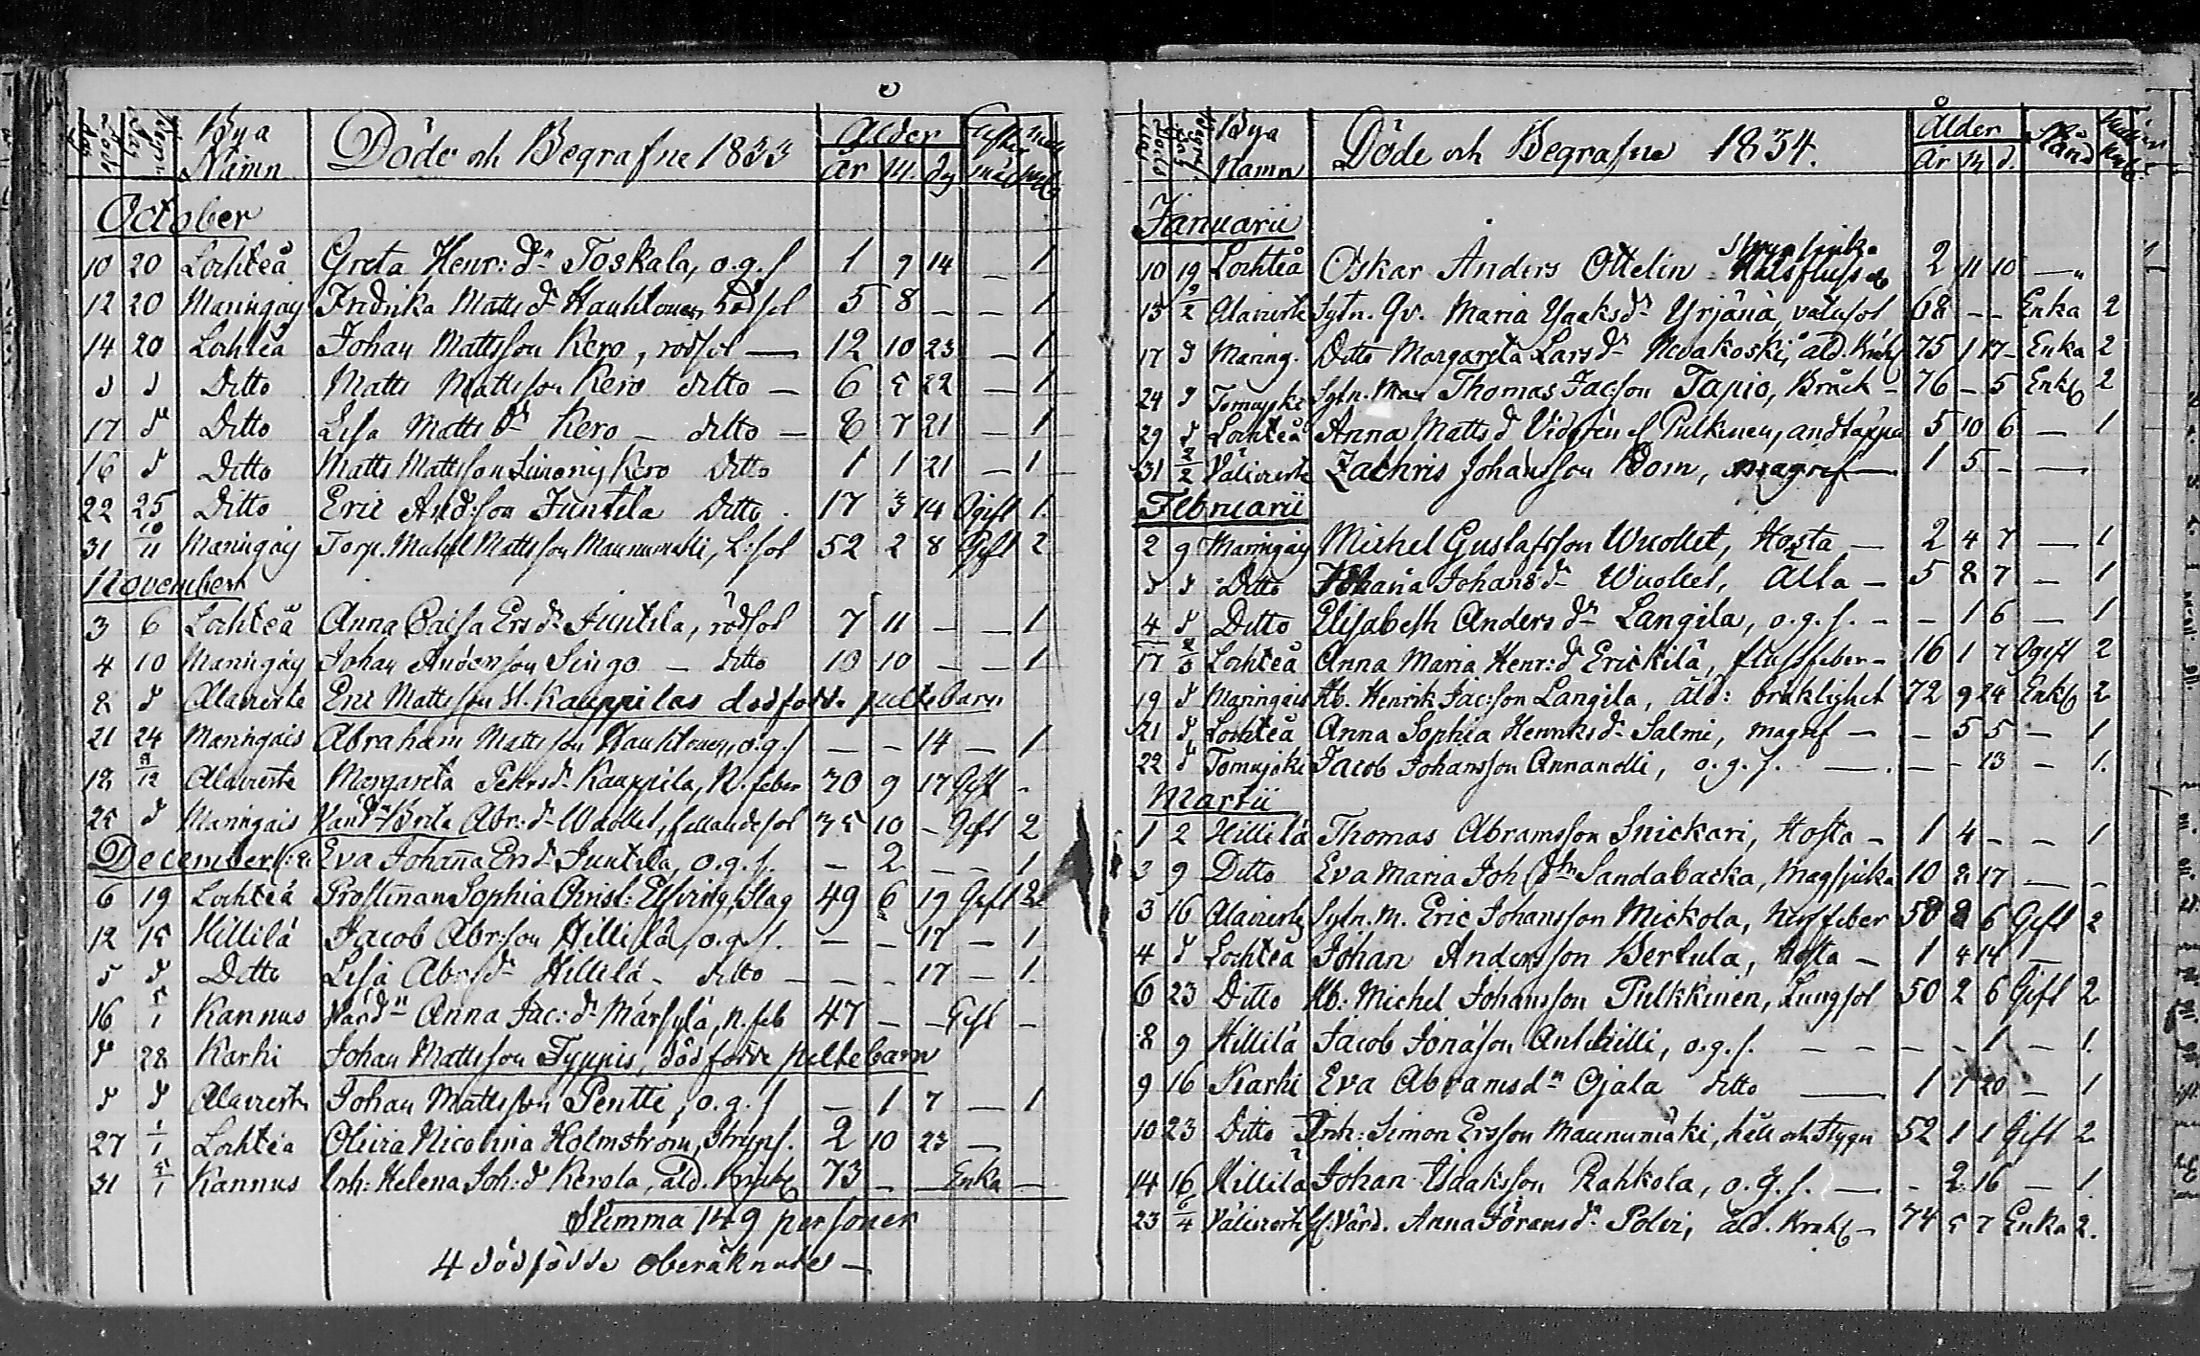 Döde och Begrafne 1833
Bya Namn
Ålder
år M. dg
October
10 20 Lochteå Greta Henr: dr Toskala, o.g.s 1 9 14 — 1
12 20 Maringais Fredrika Matts dr Hauhtonen, rödsot 5 8 — — 1
14 20 Lochteå Johan Mattsson Kero, rödsot — 12 10 23 — 1
d d Ditto Matts Mattsson Kero ditto — 6 5 22 — 1
17 d Ditto Lisa Matts dr Kero — ditto — 8 7 21 — 1
16 d Ditto Matts Mattsson Kero Ditto 1 1 21 — 1
22 25 Ditto Eric Andsson Juntila Ditto 17 3 14 Ogift 1.
31 10/11 Maringais Torp. Michel Mattsson Maunumäki, L:sot 52 2 8 Gift 2
November
3 6 Lochteå Anna Caisa Ers dr Juntila, rödsot 7 11 — — 1
4 10 Maringais Johan Andersson Singo — ditto 10 10 — — 1
8 d Alavierte Eric Mattsson St. Kauppilas dödfödde piltebarn
21 24 Maringais Abraham Mattsson Hauhtonen, o.g.s — — 14 — 1
18 8/12 Alavierte Margareta Petersdr Kauppila, N. feber 30 9 17 Gift -
25 d Maringais Värd:n Brita Abr: dr Wuollet, fallandesot 35 10 — Gift 2
December Eva Johanna Ers dr Juntila, o.g.s. — 2 — — 1
6 19 Lochteå Prostinnan Sophia Christ: Elfving, Slag 49 6 19 Gift 2
12 15 Hillilä Jacob Abr:son Hillilä, o.g.s. — — 17 — 1
5 d Ditto Lisa Abrs dr Hillilä — ditto — — 17 — 1.
16 5/1 Kannus Värd:n Anna Jac: dr Märsylä, n. feb 47 — — Gift —
d 28 Karhi Johan Mattsson Typpis, dödfödde piltebarn
d d Alavierte Johan Mattsson Pentti, o.g.s — 1 7 — 1
27 1/1 Lochteå Olivia Nicolina Holmström, Stryps. 2 10 23 —
31 5/1 Kannus Inh: Helena Joh: dr Kerola, åld. 73 — — Enka —
Summa 149 personer
4 dödfödde oberäknade —
Döde och Begrafne 1834.
Bya Namn
Ålder
År M d.
Stånd
Januarii
10 19 Lochteå Oskar Anders Ottelin Strypsjuka Halsfluss 2 11 10 — „
15 9/2 Alavierte Sytn. Qv. Maria Isaks dr Yrjänä, vatusot 68 — — Enka 2
17 d Maring. Ditto Margareta Lars dr Nevakoski, åld. 75 1 17 — Enka 2
24 d Tomujoki Sytn. Man Thomas Jacsson Tapio, Bråck — 76 — 5 Enkl 2
29 d Lochteå Anna Matts d Vidgren f Pulkinen, andtäppa 5 10 6 — 1
31 2/2 Välivierte Zachris Johansson Bom, magref — 1 5 — —
Februarii
2 9 Maringais Michel Gustafsson Wuollet, Hosta — 2 4 7 — 1
d d Ditto Johanna Johans dr Wuollet, Alta — 5 8 7 — 1
4 d Ditto Elisabeth Anders dr Langila, o.g.s. — — 1 6 — 1
17 2/3 Lochteå Anna Maria Henr: dr Erickilä, flussfeber — 16 1 7 Ogift 2
19 d Maringais Hb. Henrik Jac:son Langila, åld: bräklighet 72 9 24 Enkl 2
21 d Lochteå Anna Sophia Henriks dr Salmi, magref — — 5 5 — 1
22 d Tomujoki Jacob Johansson Annanolli, o.g.s. — — — 13 — 1.
Martii
1 2 Hillilä Thomas Abramsson Snickari, Hosta — 1 4 — — 1
3 9 Ditto Eva Maria Joh dr Sandabacka, Magsjuka 10 8 17 — —
3 16 Alavierte Sytn. M. Eric Johansson Mickola, Nerffeber 58 8 6 Gift 2
4 d Lochteå Johan Andersson Bertula, Hosta — 1 4 14 1 —
6 23 Ditto Hb: Michel Johansson Pulkkinen, Lungsot 50 2 6 Gift 2
8 9 Hillilä Jacob Jonasson Anttihilli, o.g.s. — — — — 1 — 1.
9 16 Karhi Eva Abramsdr Ojala ditto — 1 1 20 — 1
10 23 Ditto Inh: Simon Ersson Maunumäki, håll och stygn 52 1 1 Gift 2
14 16 Hillilä Johan Isaksson Rahkola, o.g.s. — — 2 16 — 1.
23 6/4 Välivierte Gl. Värd. Anna Görans dr Polvi, åld. Krakl — 74 5 7 Enka 2.